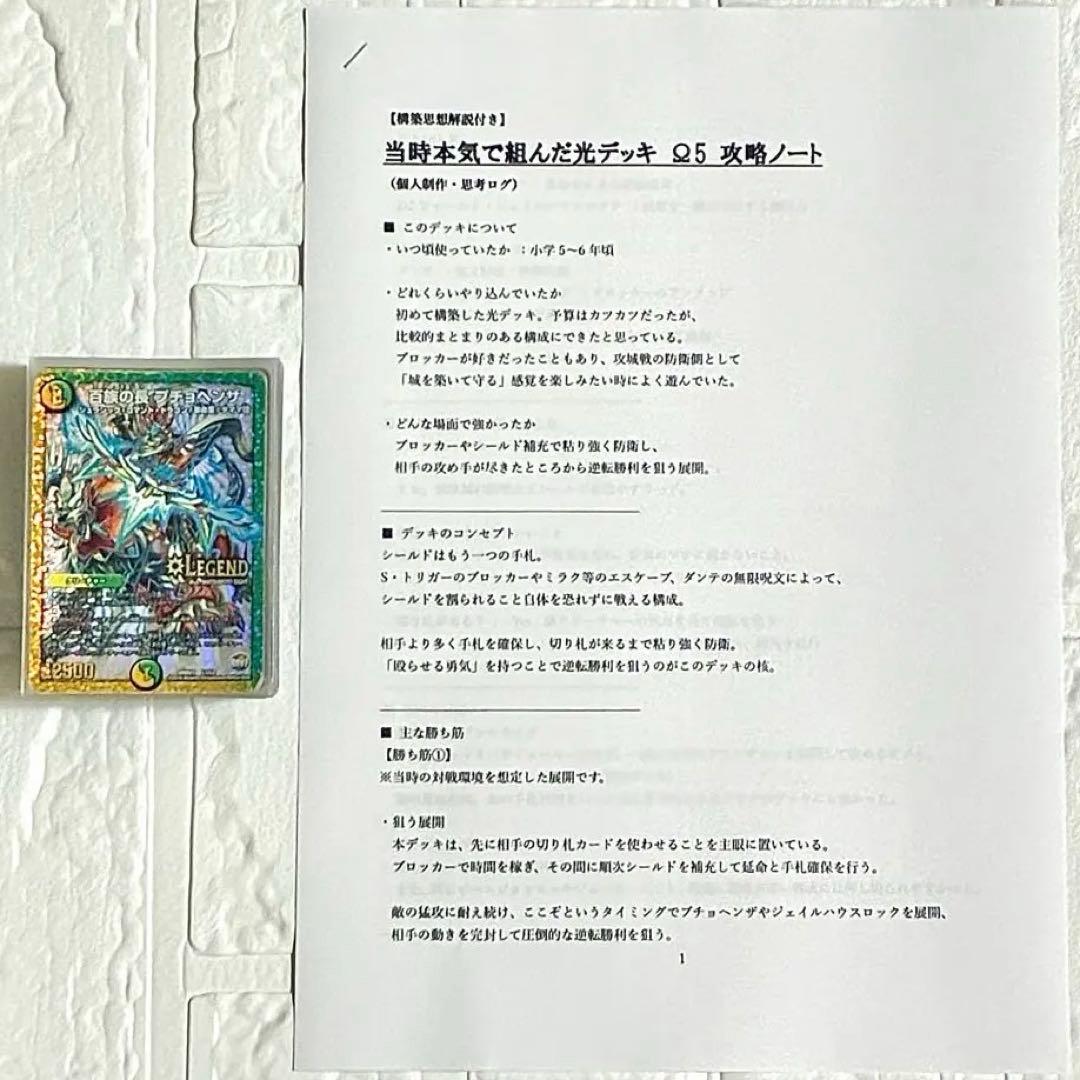 百族の長 プチョヘンザ
LEGEND
12500
【構築思想解説付き】
当時本気で組んだ光デッキ Ω5 攻略ノート
（個人制作・思考ログ）
■ このデッキについて
・いつ頃使っていたか ：小学5～6年頃
・どれくらいやり込んでいたか
初めて構築した光デッキ。予算はカツカツだったが、
比較的まとまりのある構成にできたと思っている。
ブロッカーが好きだったこともあり、攻城戦の防衛側として
「城を築いて守る」感覚を楽しみたい時によく遊んでいた。
・どんな場面で強かったか
ブロッカーやシールド補充で粘り強く防衛し、
相手の攻め手が尽きたところから逆転勝利を狙う展開。
■ デッキのコンセプト
シールドはもう一つの手札。
S・トリガーのブロッカーやミラク等のエスケープ、ダンテの無限呪文によって、
シールドを割られること自体を恐れずに戦える構成。
相手より多く手札を確保し、切り札が来るまで粘り強く防衛。
「殴らせる勇気」を持つことで逆転勝利を狙うのがこのデッキの核。
■ 主な勝ち筋
【勝ち筋①】
※当時の対戦環境を想定した展開です。
・狙う展開
本デッキは、先に相手の切り札カードを使わせることを主眼に置いている。
ブロッカーで時間を稼ぎ、その間に順次シールドを補充して延命と手札確保を行う。
敵の猛攻に耐え続け、ここぞというタイミングでプチョヘンザやジェイルハウスロックを展開、
相手の動きを完封して圧倒的な逆転勝利を狙う。
1